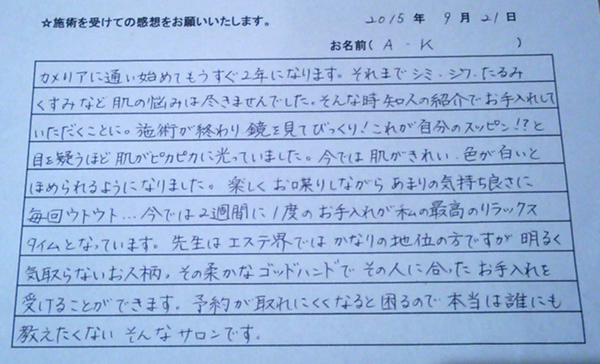 ☆施術を受けての感想をお願いいたします。 2015年 9月 21日
お名前( A - K )
カメリアに通い始めてもうすぐ2年になります。それまでシミ・シワ・たるみ
くすみなど肌の悩みは尽きませんでした。そんな時知人の紹介でお手入れして
いただくことに。施術が終わり鏡を見てびっくり!これが自分のスッピン!?と
目を疑うほど肌がピカピカに光っていました。今では肌がきれい、色が白いと
ほめられるようになりました。楽しくお喋りしながらあまりの気持ち良さに
毎回ウトウト…今では2週間に1度のお手入れが私の最高のリラックス
タイムとなっています。先生はエステ界ではかなりの地位の方ですが明るく
気取らないお人柄。その柔かなゴッドハンドでその人に合ったお手入れを
受けることができます。予約が取れにくくなると困るので本当は誰にも
教えたくないそんなサロンです。